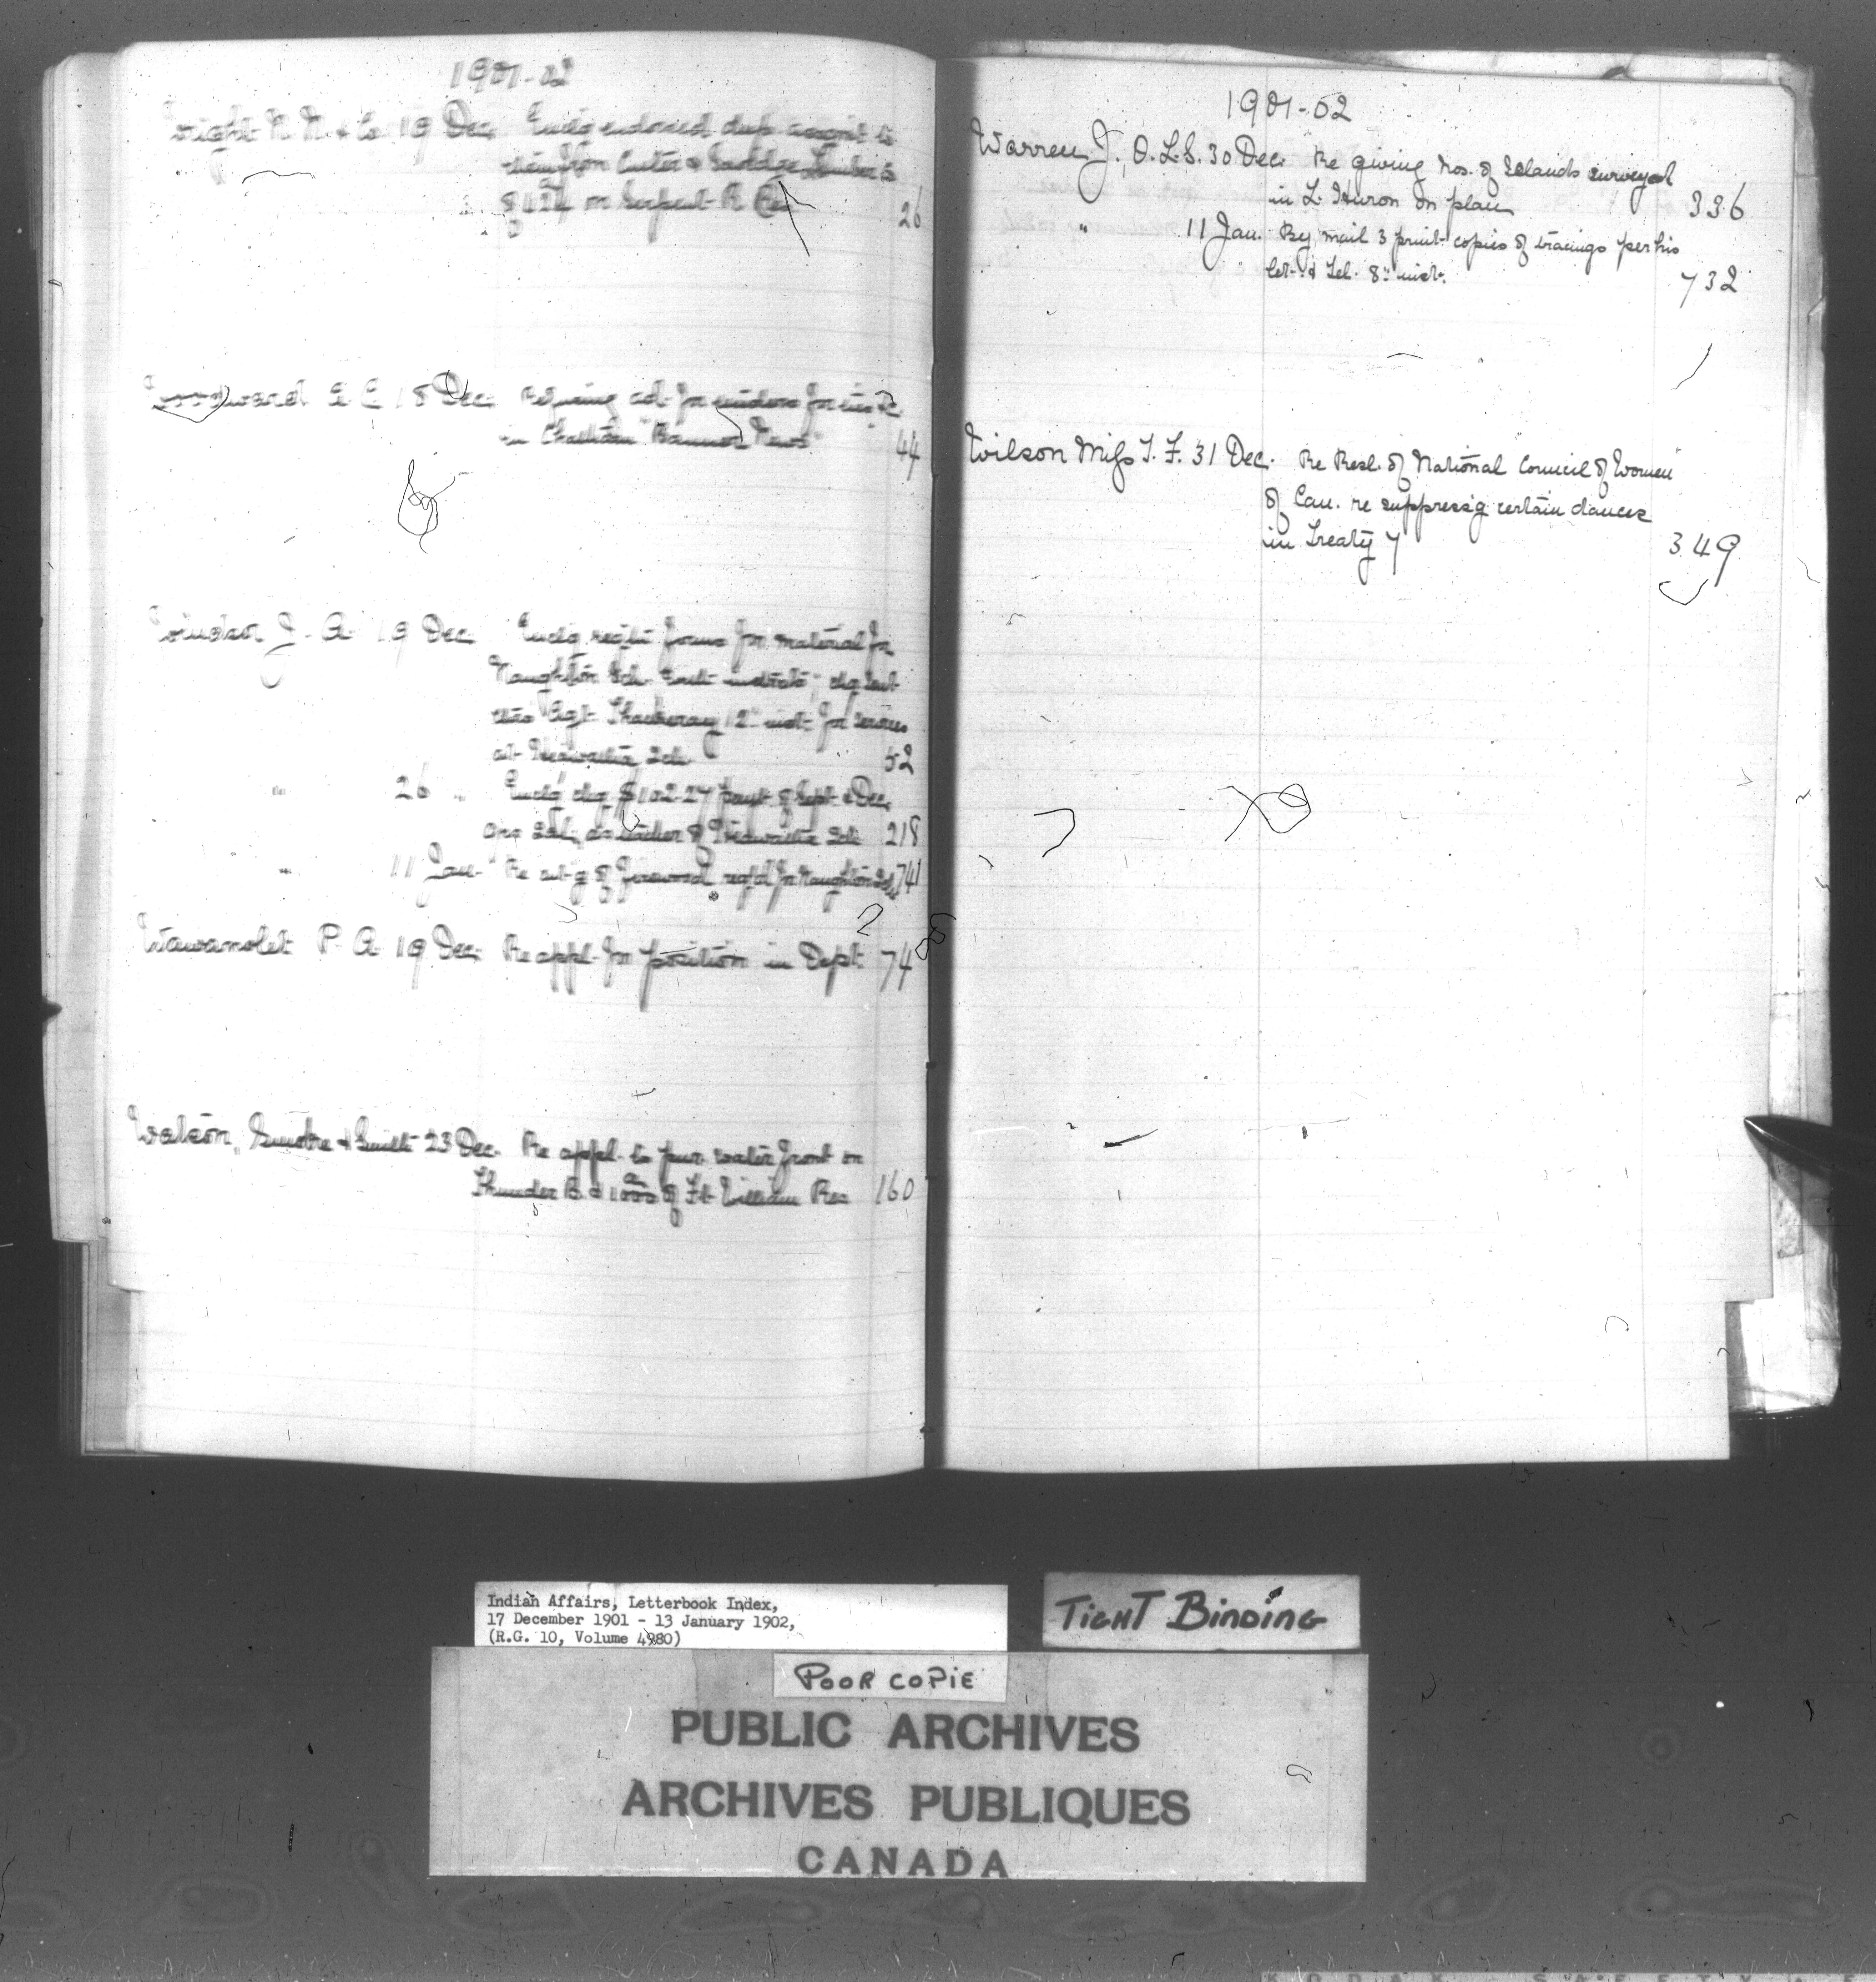 1901-02
Wright N. N. & Co 19 Dec Enclg endorsed dup. assgnt to
them from Cutler & Savidge Lumber
on Serpent R Res 26
Woodward S. E. 18 Dec. adt. for tenders for
in Chatham "Banner News" 44
J. A. 19 Dec Enclg forms for material for
Naughton Sch. chq sent
Agt. Thackeray 12" inst. for services
at Sch. 52
" 26 " Enclg chq $102.27 payt. of Sept. & Dec.
Qrs Sal. as teacher of Sch 218
" 11 Jan. Re of firewood req'd for Naughton Sch 741
Wawanolet P. A. 19 Dec. Re appl. for position in Dept. 74
Watson, Smoke & Smith 23 Dec. Re appl. to pur. water front on
Thunder B. & 1000 of Ft William Res 160
1901-02
Warren J., O.L.S. 30 Dec. Re giving Nos. of Islands surveyed
in L. Huron on plan 336
" 11 Jan. By mail 3 print copies of tracings per his
let. & Tel. 8" inst. 732
Wilson Miss T. F. 31 Dec. Re Resl. of National Council of Women
of Can. re suppress'g certain dances
in Treaty 7 349
Indian Affairs, Letterbook Index,
17 December 1901 - 13 January 1902,
(R.G. 10, Volume 4980)
TIGHT BINDING
POOR COPIE
PUBLIC ARCHIVES
ARCHIVES PUBLIQUES
CANADA